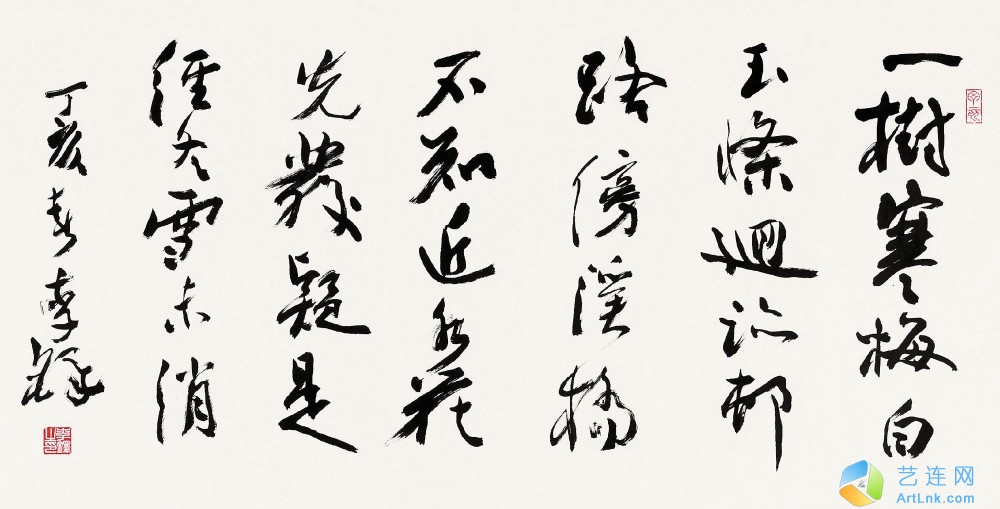 一樹寒梅白
玉條迴臨邨
路傍溪橋
不知近水花
先發疑是
經冬雪未消
丁亥春李鐸
艺连网
ArtLnk.com